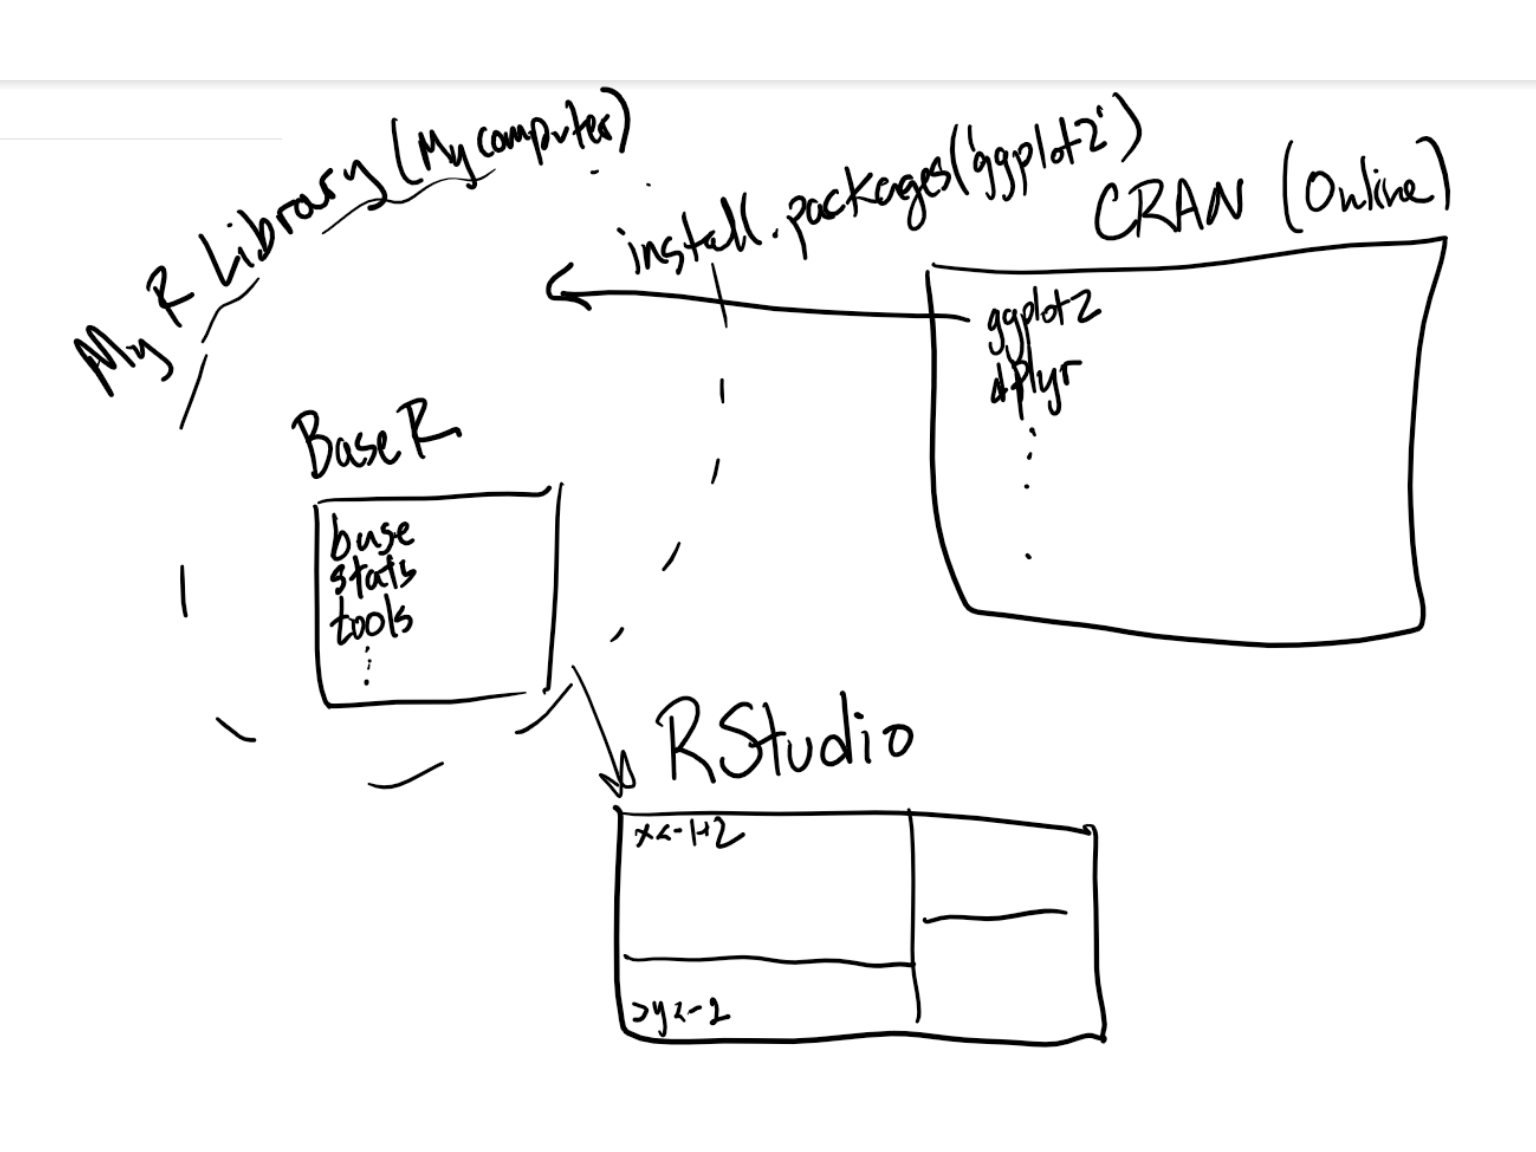 My R Library (My computer)
install.packages('ggplot2')
CRAN (Online)
ggplot2
dplyr
Base R
base
stats
tools
RStudio
x<-1+2
>y<-2